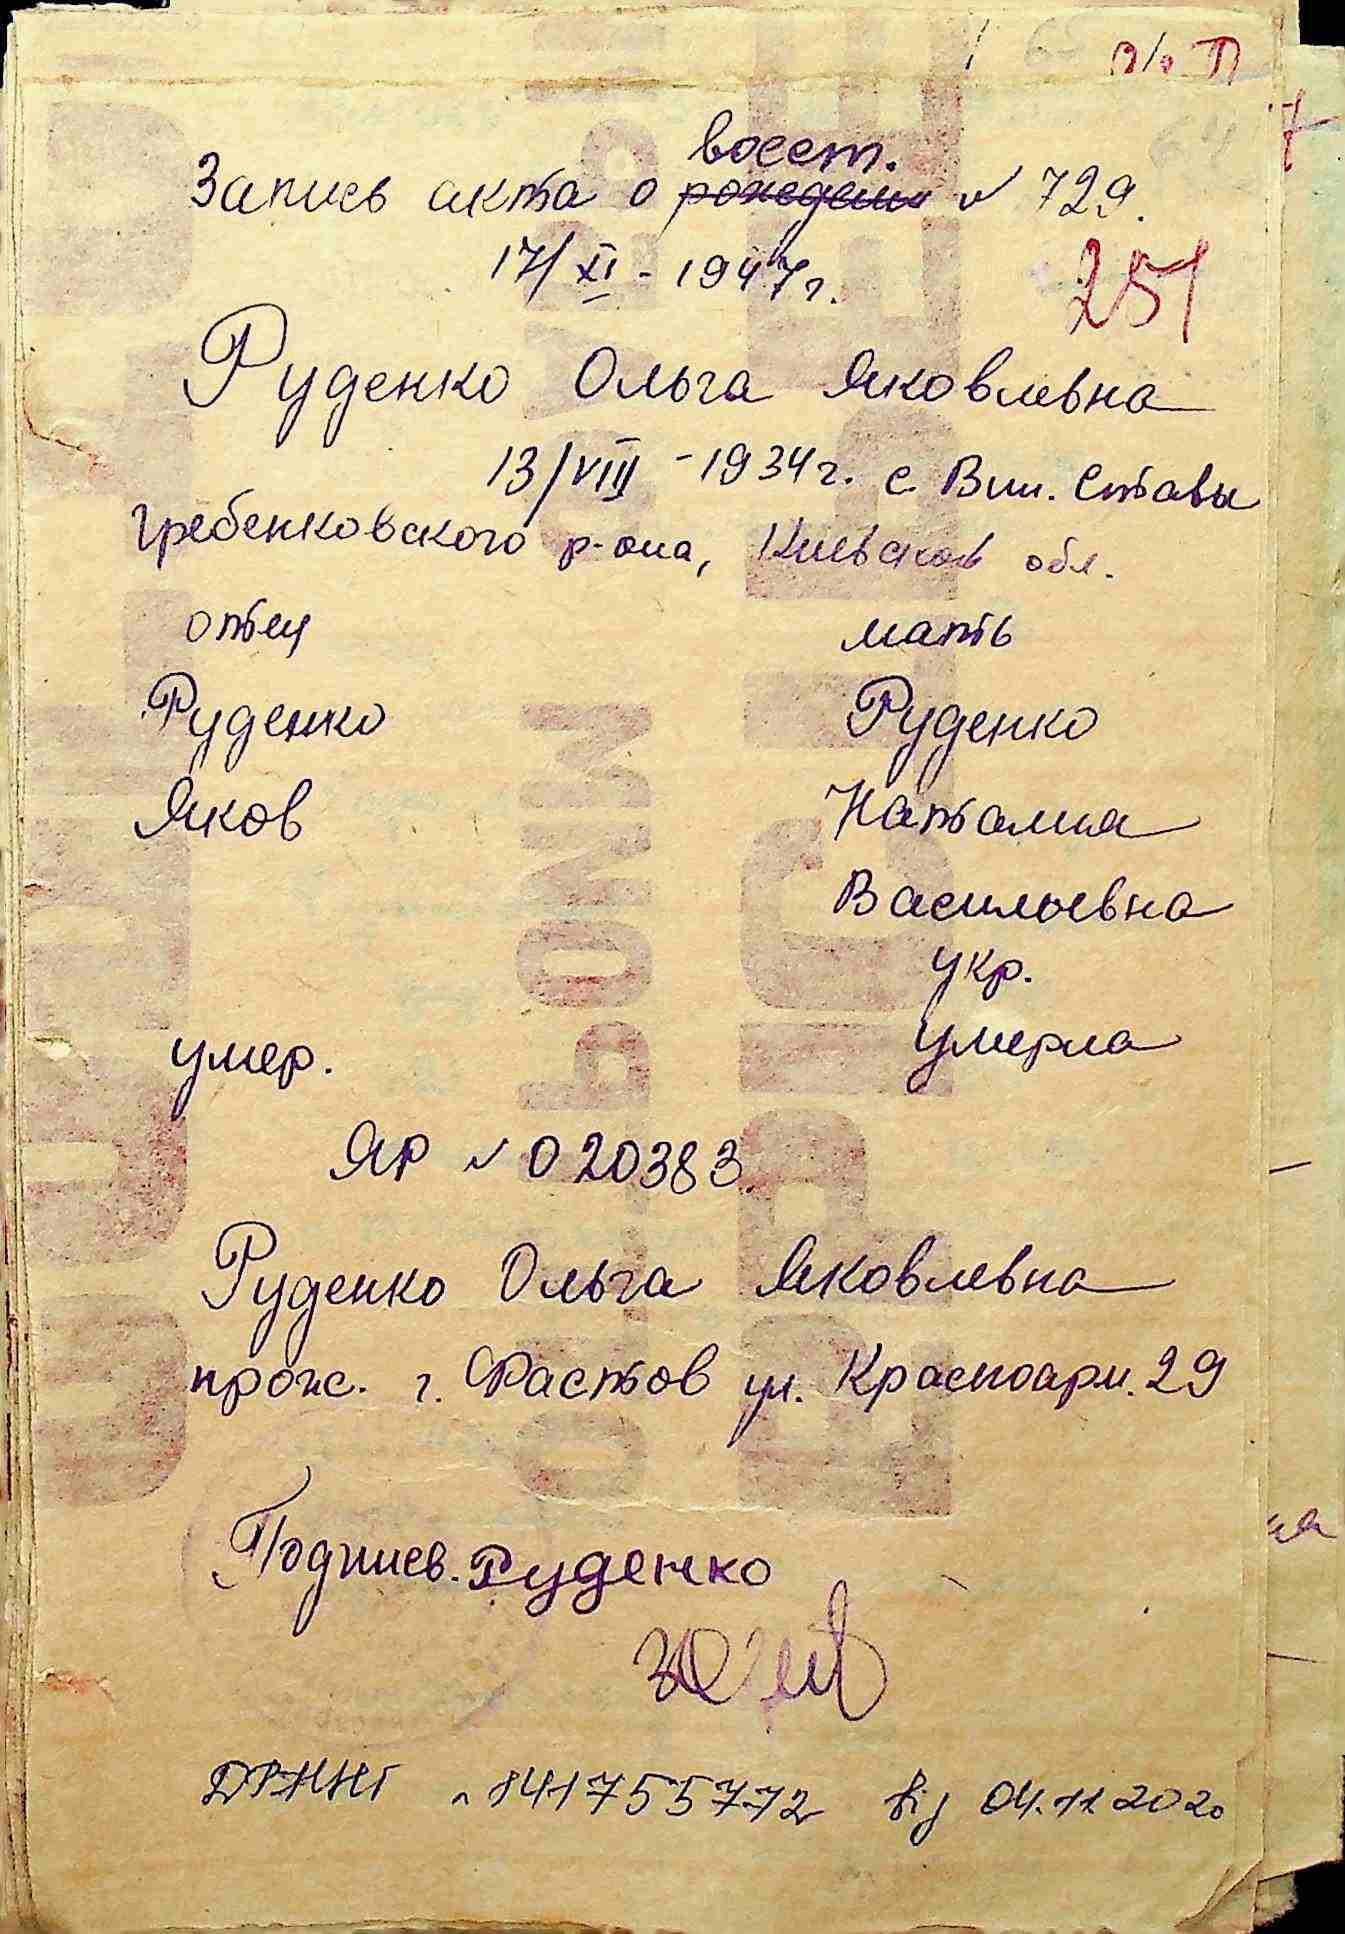 п/о П
восст.
Запись акта о рождении № 729.
17/XI - 1947г.
251
Руденко Ольга Яковлевна
13/VIII - 1934г. с. Вин. Ставы
Гребенковского р-она, Киевской обл.
отец мать
Руденко Руденко
Яков Наталия
Васильевна
укр.
умер. умерла
ЯР № 020383
Руденко Ольга Яковлевна
прож. г. Фастов ул. Красноарм. 29
Подпись. Руденко
№ 141755772 від 04.11.2020